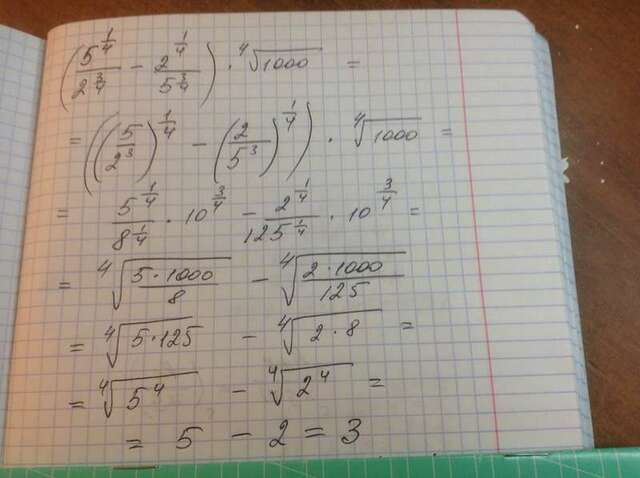 (5^{1/4}/2^{3/4} - 2^{1/4}/5^{3/4}) · ⁴√1000 =
= ((5/2³)^{1/4} - (2/5³)^{1/4}) · ⁴√1000 =
= 5^{1/4}/8^{1/4} · 10^{3/4} - 2^{1/4}/125^{1/4} · 10^{3/4} =
= ⁴√(5·1000/8) - ⁴√(2·1000/125)
= ⁴√(5·125) - ⁴√(2·8) =
= ⁴√(5⁴) - ⁴√(2⁴) =
= 5 - 2 = 3